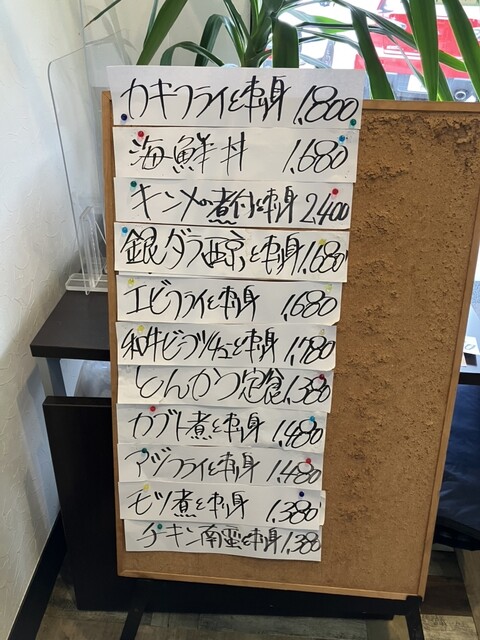 カキフライと刺身 1,800
海鮮丼 1,680
キンメ煮付と刺身 2,400
銀ダラ西京と刺身 1,680
エビフライと刺身 1,680
和牛ビーフシチューと刺身 1,780
とんかつ定食 1,380
カブト煮と刺身 1,480
アジフライと刺身 1,480
モツ煮と刺身 1,380
チキン南蛮と刺身 1,380